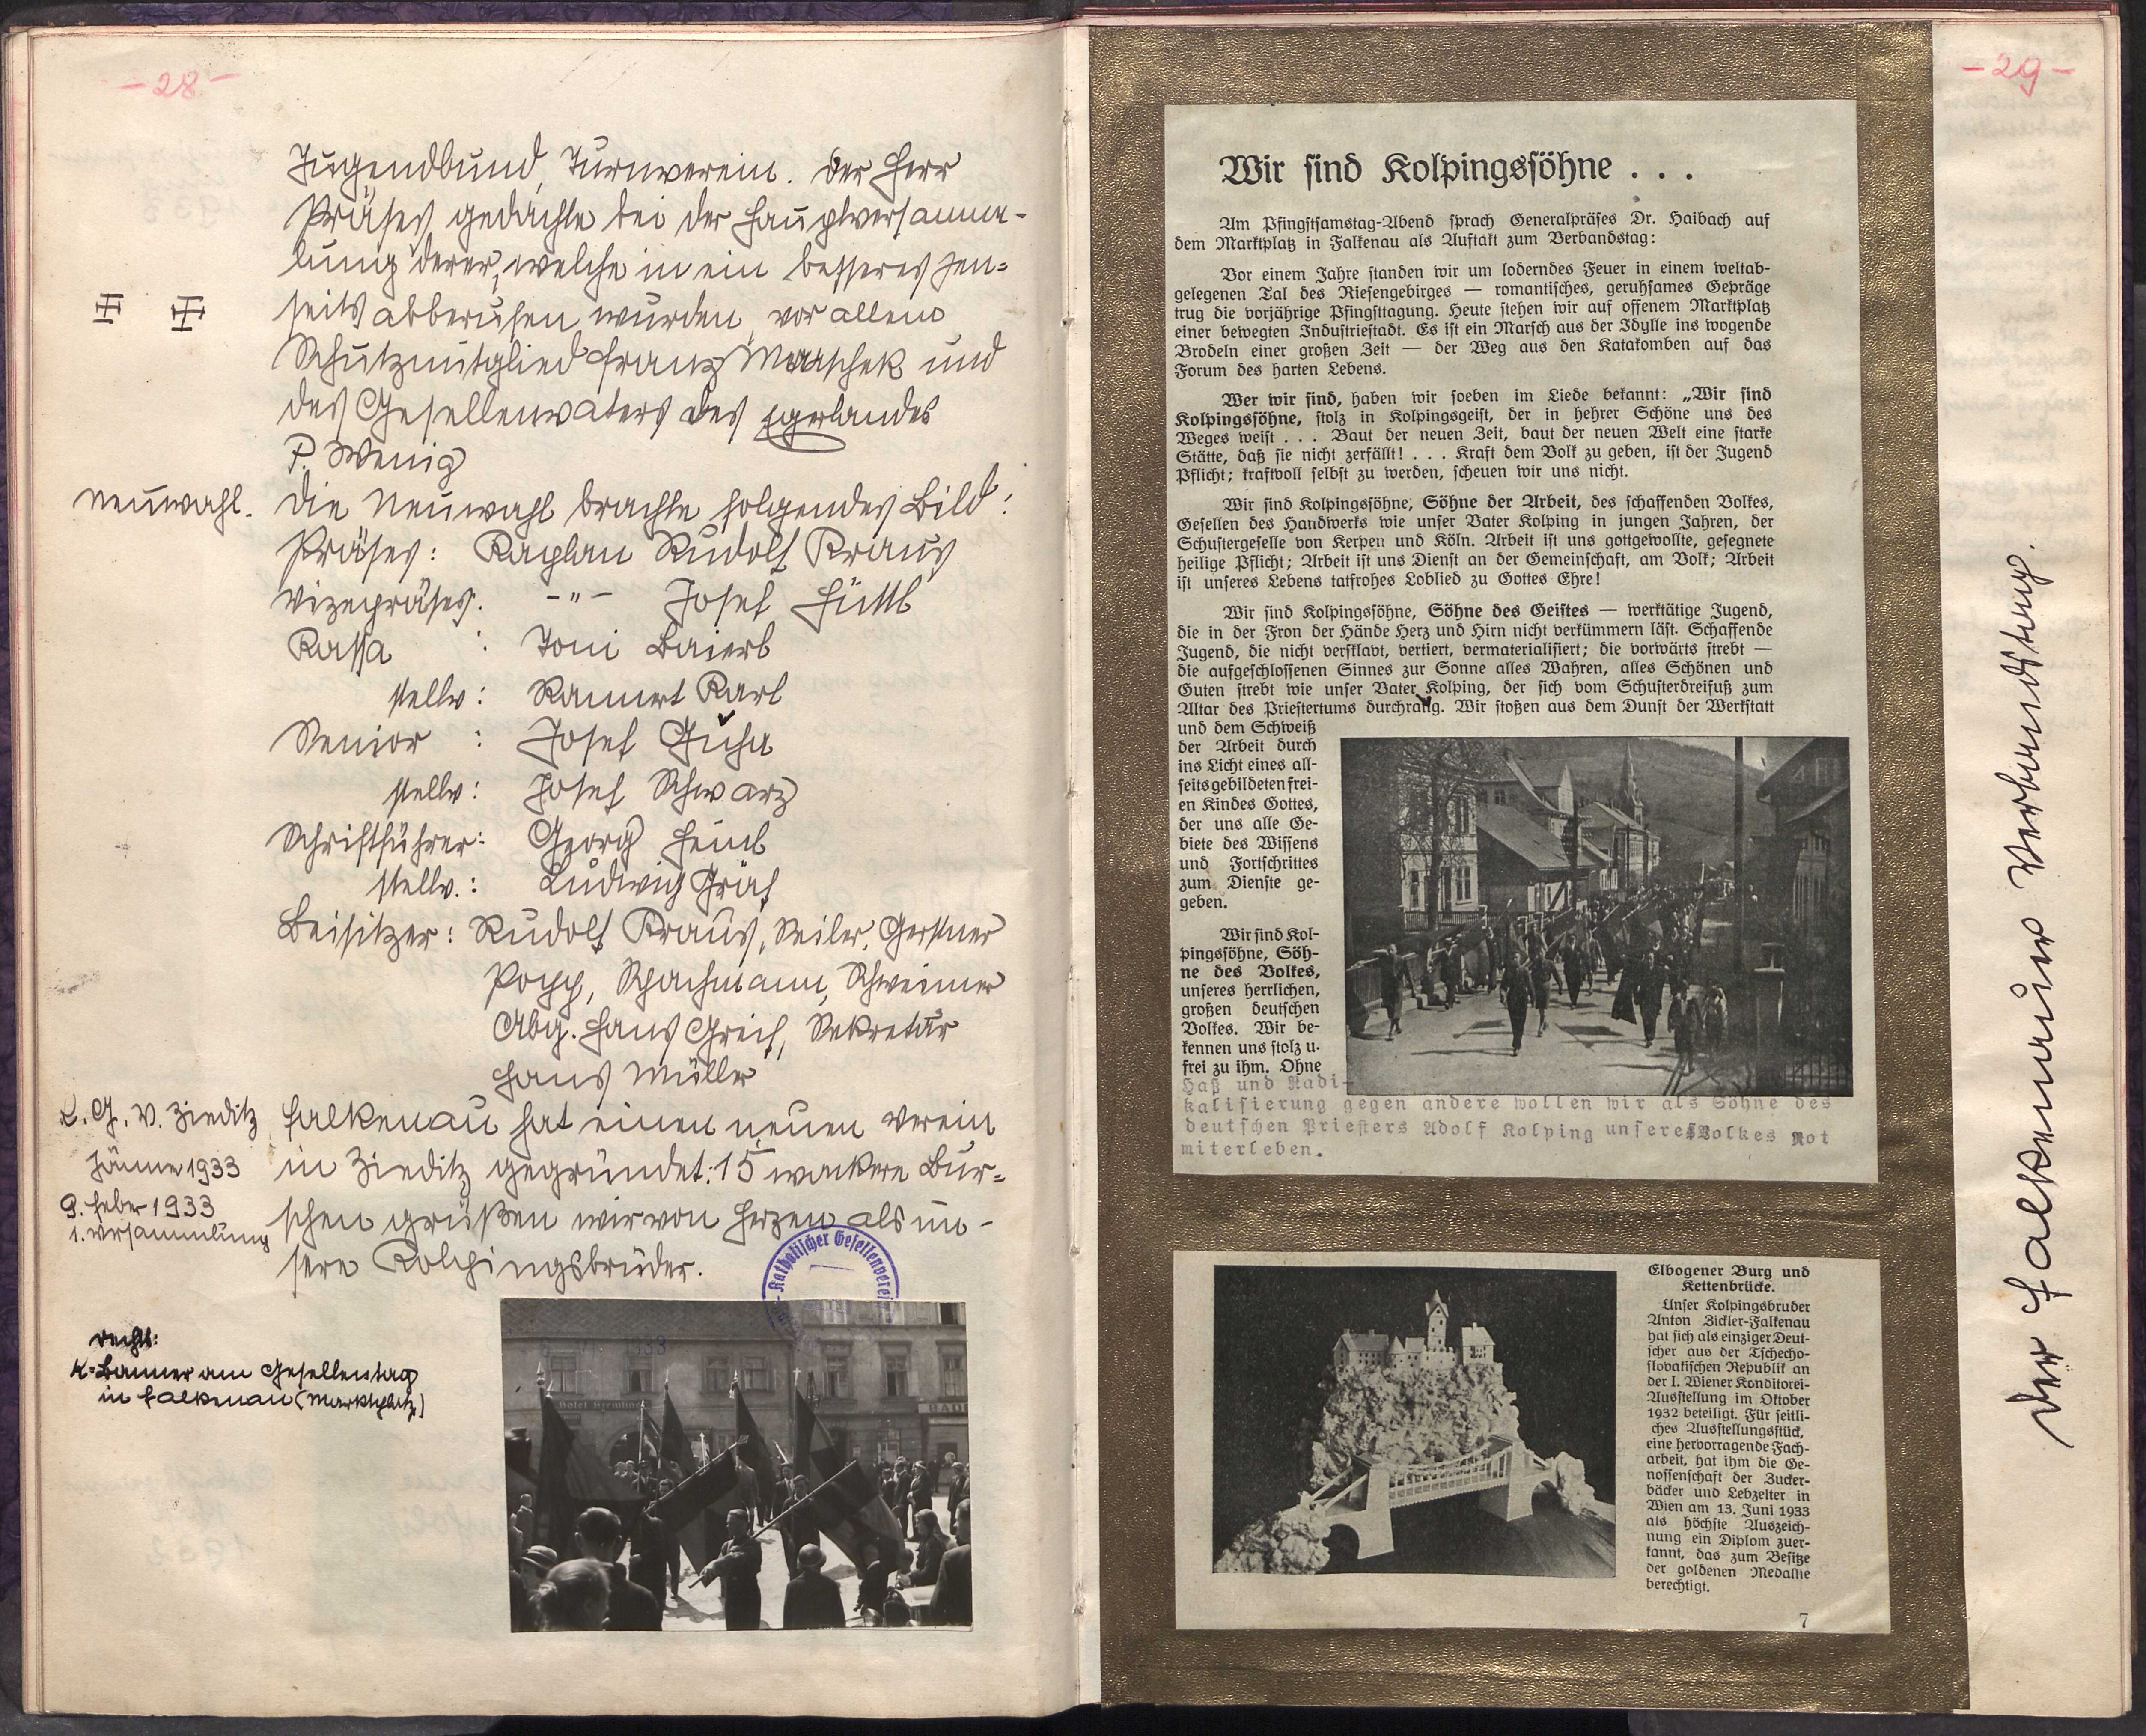 - 28 -
Jugendbund, Turnverein. Der Herr
Präses gedachte bei der Hauptversamm-
lung derer, welche in ein besseres Jen-
seits abberufen wurden, vor allem
Schutzmitglied Franz Maschek und
des Gesellenvaters des Egerlandes
P. Wenig
Neuwahl. Die Neuwahl brachte folgendes Bild:
Präses: Kaplan Rudolf Kraus
Vizepräses: -"- Josef Hüttl
Kassa : Toni Baierl
stellv: Rannert Karl
Senior : Josef Guha
stellv: Josef Schwarz
Schriftführer: Georg Heinl
stellv.: Ludwig Gräf
Beisitzer: Rudolf Kraus, Seiler, Gerstner
Popp, Schachmann, Schweimer
Abg. Hans Greif, Sekretär
Hans Müller
K. G. V. Zieditz
Jänner 1933
9. Feber 1933
1. Versammlung
Falkenau hat einen neuen Verein
in Zieditz gegründet: 15 wackere Bur-
schen grüßen wir von Herzen als un-
sere Kolpingsbrüder.
Katholischer Gesellenverein
rechts:
K=Banner am Gesellentag
in Falkenau (Marktplatz)
- 29 -
Wir sind Kolpingssöhne . . .
Am Pfingstsamstag-Abend sprach Generalpräses Dr. Haibach auf
dem Marktplatz in Falkenau als Auftakt zum Verbandstag:
Vor einem Jahre standen wir um loderndes Feuer in einem weltab-
gelegenen Tal des Riesengebirges — romantisches, geruhsames Gepräge
trug die vorjährige Pfingsttagung. Heute stehen wir auf offenem Marktplatz
einer bewegten Industriestadt. Es ist ein Marsch aus der Idylle ins wogende
Brodeln einer großen Zeit — der Weg aus den Katakomben auf das
Forum des harten Lebens.
Wer wir sind, haben wir soeben im Liede bekannt: „Wir sind
Kolpingssöhne, stolz in Kolpingsgeist, der in hehrer Schöne uns des
Weges weist . . . Baut der neuen Zeit, baut der neuen Welt eine starke
Stätte, daß sie nicht zerfällt! . . . Kraft dem Volk zu geben, ist der Jugend
Pflicht; kraftvoll selbst zu werden, scheuen wir uns nicht.
Wir sind Kolpingssöhne, Söhne der Arbeit, des schaffenden Volkes,
Gesellen des Handwerks wie unser Vater Kolping in jungen Jahren, der
Schustergeselle von Kerpen und Köln. Arbeit ist uns gottgewollte, gesegnete
heilige Pflicht; Arbeit ist uns Dienst an der Gemeinschaft, am Volk; Arbeit
ist unseres Lebens tatfrohes Loblied zu Gottes Ehre!
Wir sind Kolpingssöhne, Söhne des Geistes — werktätige Jugend,
die in der Fron der Hände Herz und Hirn nicht verkümmern läst. Schaffende
Jugend, die nicht versklavt, vertiert, vermaterialisiert; die vorwärts strebt —
die aufgeschlossenen Sinnes zur Sonne alles Wahren, alles Schönen und
Guten strebt wie unser Vater Kolping, der sich vom Schusterdreifuß zum
Altar des Priestertums durchrang. Wir stoßen aus dem Dunst der Werkstatt
und dem Schweiß
der Arbeit durch
ins Licht eines all-
seits gebildeten frei-
en Kindes Gottes,
der uns alle Ge-
biete des Wissens
und Fortschrittes
zum Dienste ge-
geben.
Wir sind Kol-
pingssöhne, Söh-
ne des Volkes,
unseres herrlichen,
großen deutschen
Volkes. Wir be-
kennen uns stolz u.
frei zu ihm. Ohne
Haß und Radi-
kalisierung gegen andere wollen wir als Söhne des
deutschen Priesters Adolf Kolping unseres Volkes Not
miterleben.
Elbogener Burg und
Kettenbrücke.
Unser Kolpingsbruder
Anton Zickler-Falkenau
hat sich als einziger Deut-
scher aus der Tschecho-
slovakischen Republik an
der I. Wiener Konditorei-
Ausstellung im Oktober
1932 beteiligt. Für seitli-
ches Ausstellungsstück,
eine hervorragende Fach-
arbeit, hat ihm die Ge-
nossenschaft der Zucker-
bäcker und Lebzelter in
Wien am 13. Juni 1933
als höchste Auszeich-
nung ein Diplom zuer-
kannt, das zum Besitze
der goldenen Medallie
berechtigt.
7
Der Falkenauer Verbandstag.